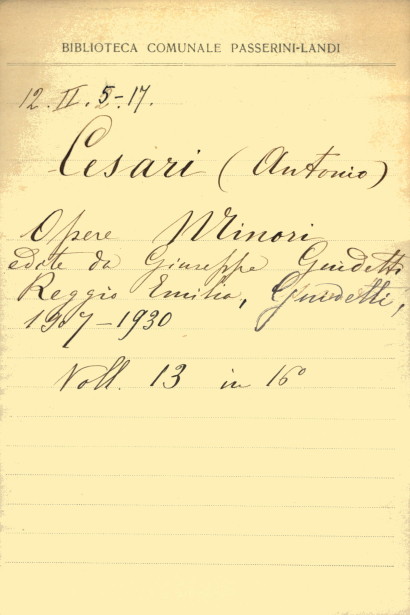 BIBLIOTECA COMUNALE PASSERINI-LANDI
12. II. 5-17.
Cesari (Antonio)
Opere Minori
edite da Giuseppe Guidetti
Reggio Emilia, Guidetti,
1907-1930
Voll. 13 in 16°